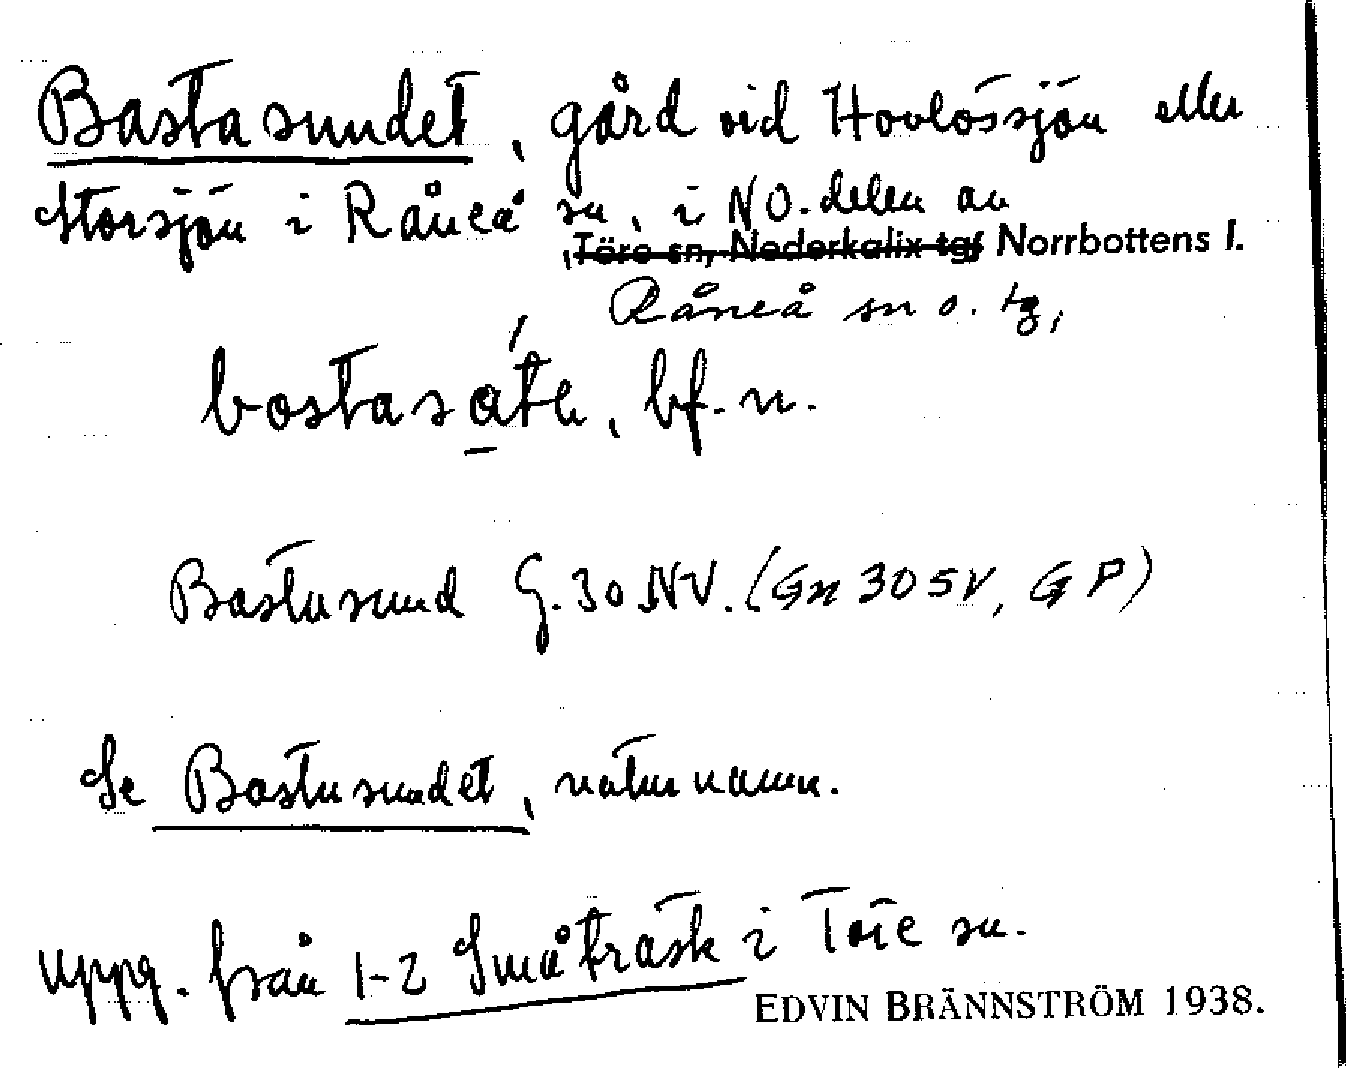 Bastasundet, gård vid Hovlössjön eller
Storsjön i Råneå sn, i NO. delen av
, Töre sn, Nederkalix tg, Norrbottens l.
Råneå sn o. tg,
bostasa̲ʹtn, bf. n.
Bastusund G. 30 NV. (Gn 30 SV, GP)
Se Bastusundet, naturnamn.
Uppg. från 1-2 Småträsk i Töre sn.
EDVIN BRÄNNSTRÖM 1938.